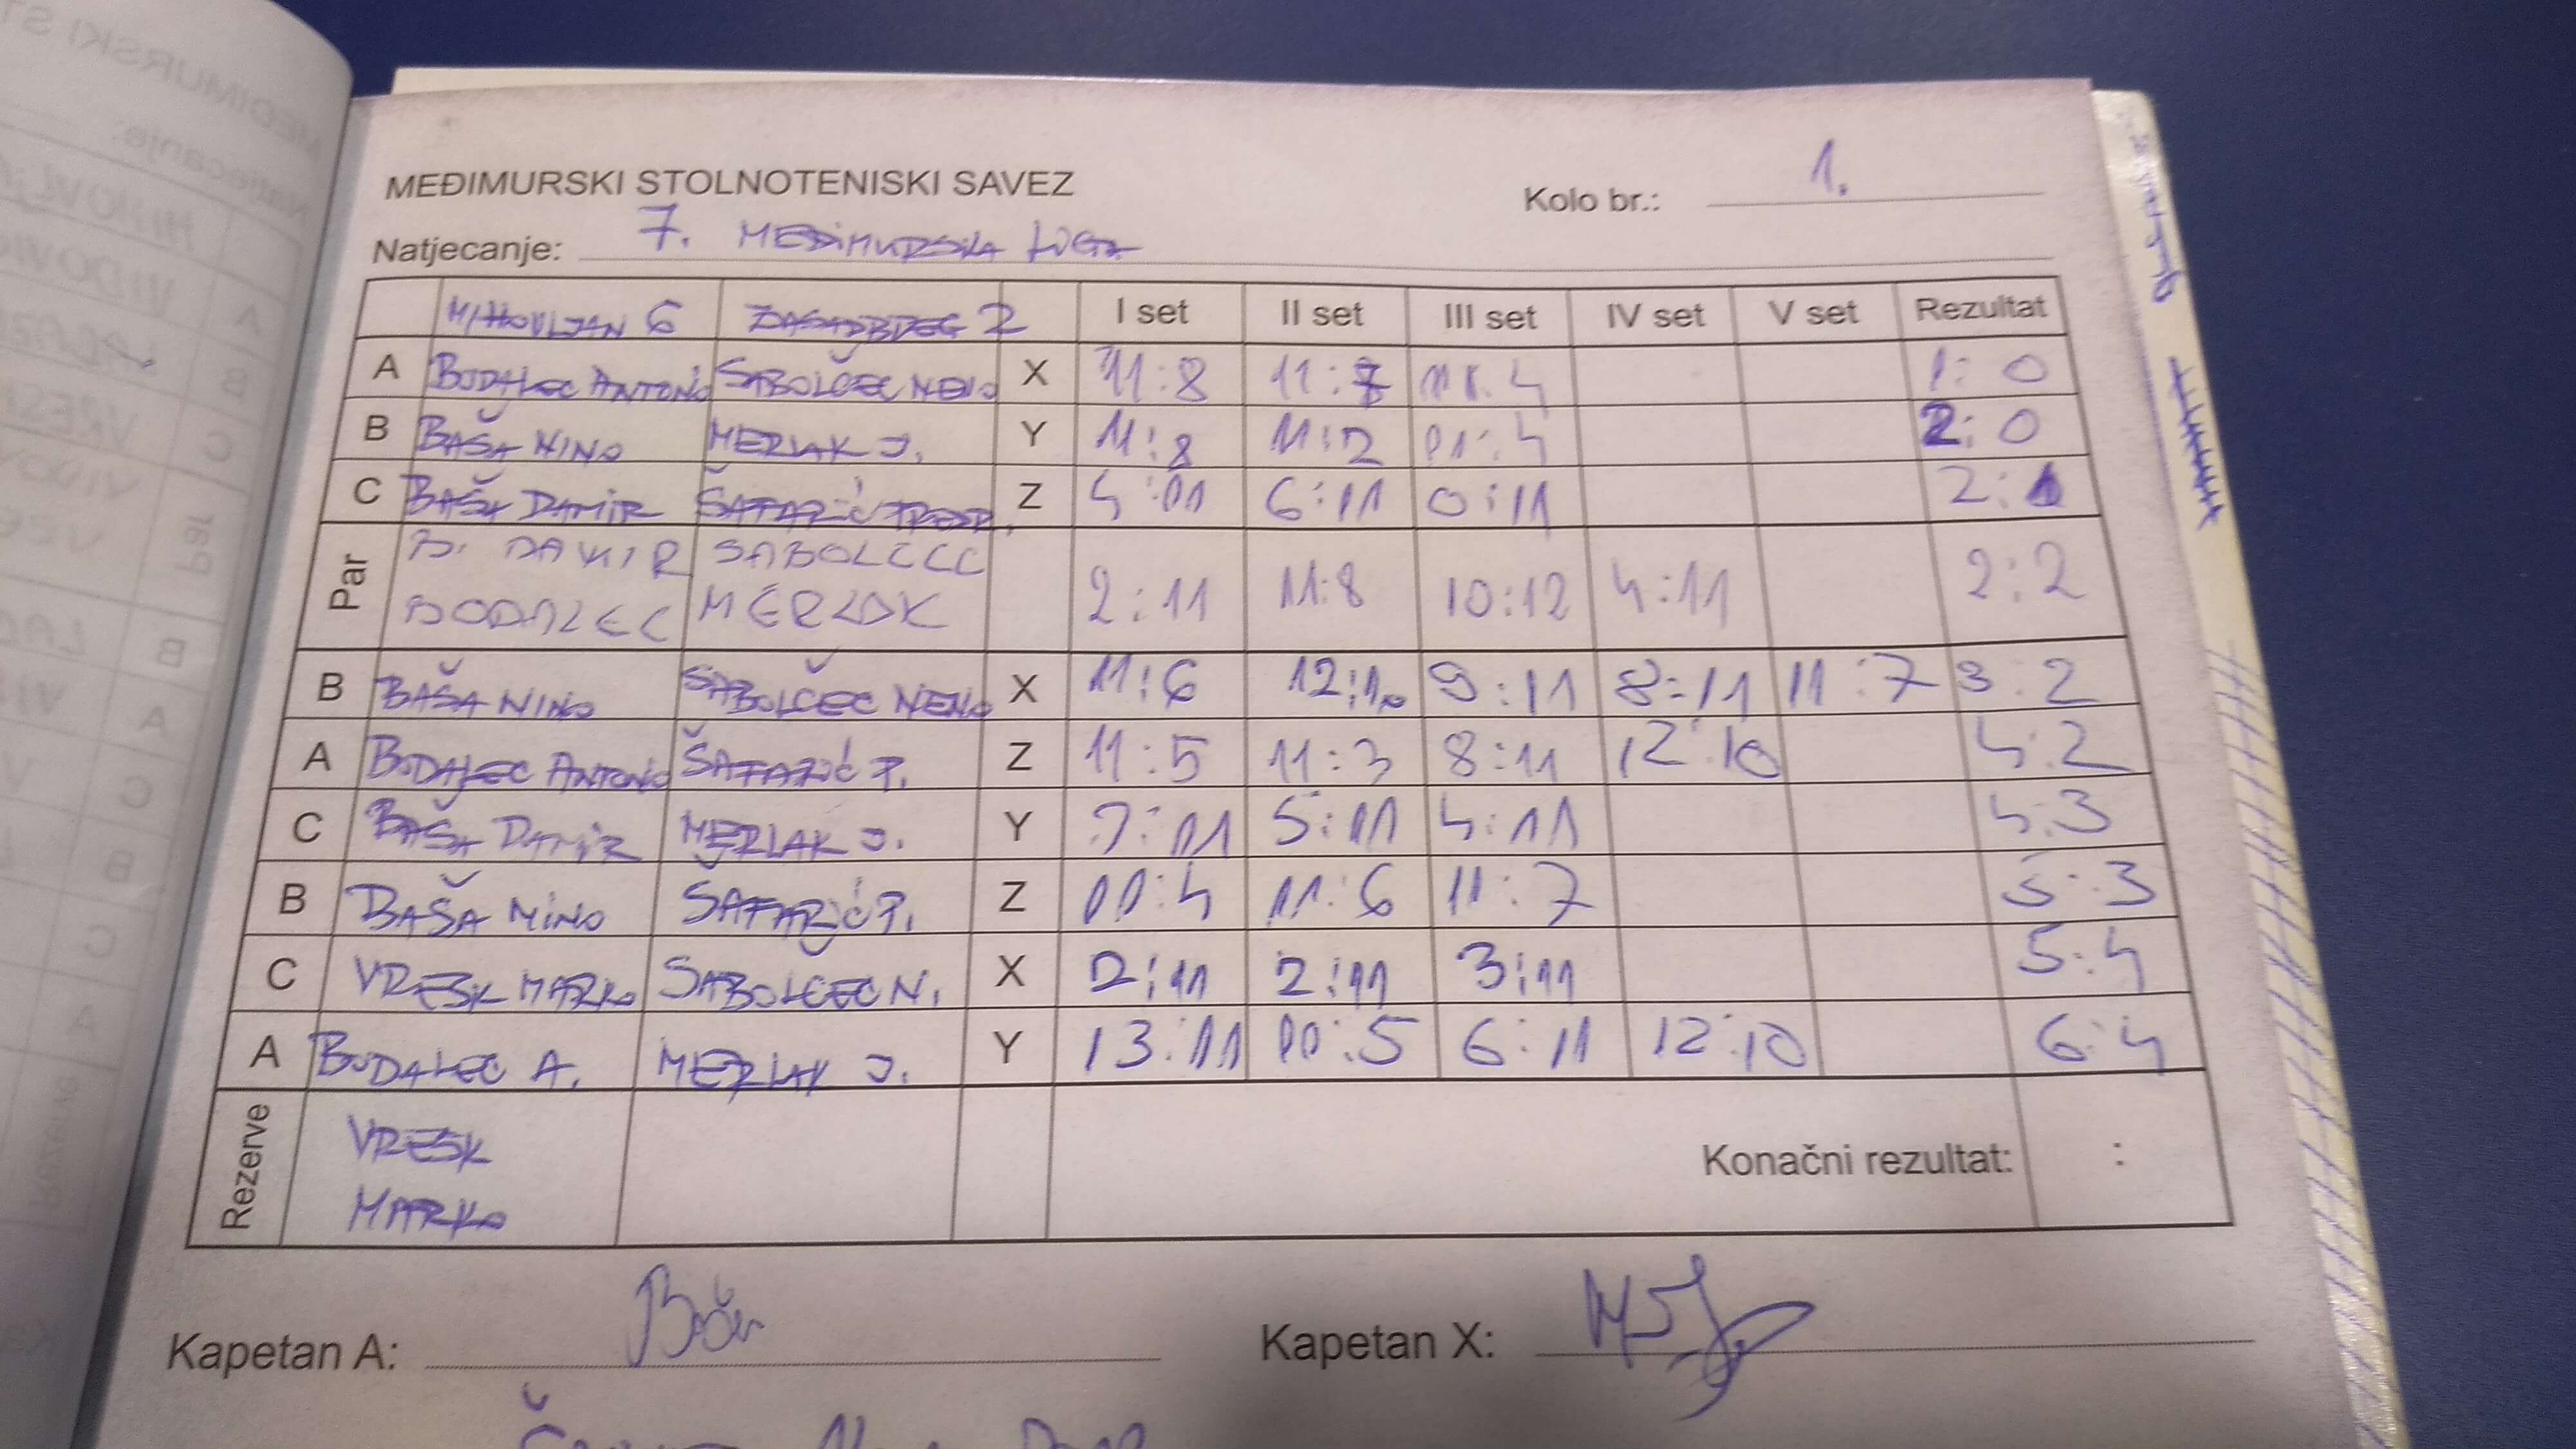 MEĐIMURSKI STOLNOTENISKI SAVEZ
Kolo br.: 1.
Natjecanje: 7. MEĐIMURSKA LIGA
MIHOVLJAN 6 ZASADBREG 2 I set II set III set IV set V set Rezultat
A BUDALEC ANTONIO SABOLČEC NENO X 11:8 11:7 11:4 1:0
B BAŠA NINO MERLAK J. Y 11:8 11:2 11:4 2:0
C BAŠA DAMIR ŠAFARIĆ Z 4:11 6:11 0:11 2:1
Par B. DAMIR SABOLCEC 2:11 11:8 10:12 4:11 2:2
BODALEC MERLAK
B BAŠA NINO SABOLČEC NENO X 11:6 12:10 9:11 8:11 11:7 3:2
A BUDALEC ANTONIO ŠAFARIĆ P. Z 11:5 11:3 8:11 12:10 4:2
C BAŠA DAMIR MERLAK J. Y 7:11 5:11 4:11 4:3
B BAŠA NINO ŠAFARIĆ P. Z 11:4 11:6 11:7 5:3
C VRESK MARKO SABOLČEC N. X 2:11 2:11 3:11 5:4
A BUDALEC A. MERLAK J. Y 13:11 11:5 6:11 12:10 6:4
Rezerve VRESK
MARKO
Konačni rezultat: :
Kapetan A:
Kapetan X: